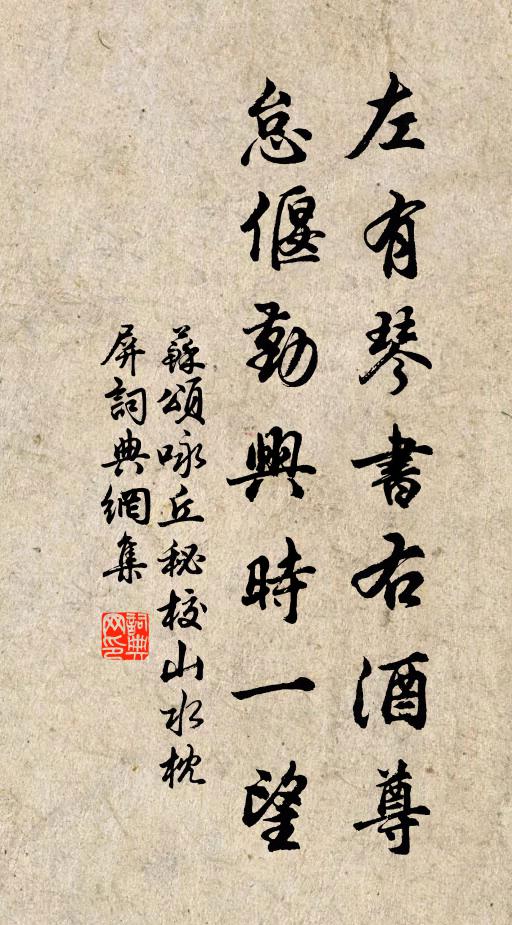 左有琴書右酒尊
怠偃勤興時一望
蘇頌咏丘秘校山水枕
屏詞典網集
詞典网印